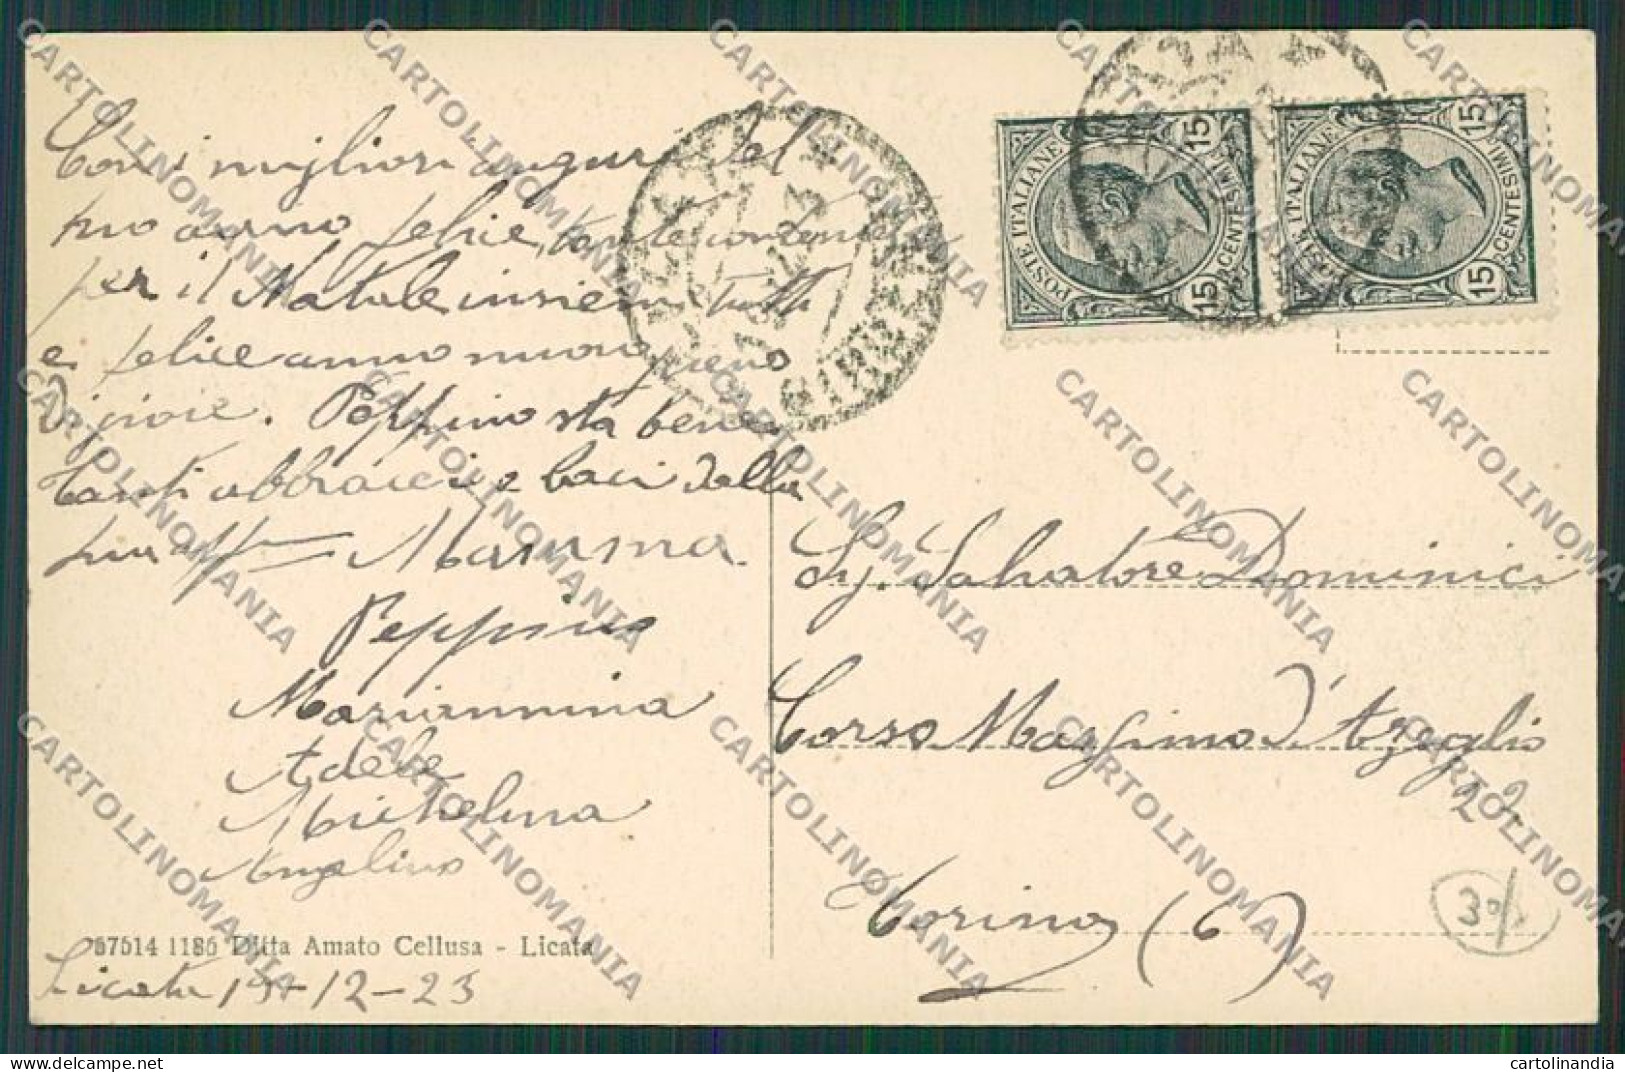 Coi migliori auguri del
tuo anno felice, tante contente
per il Natale insieme tutti
e felice anno nuovo pieno
Di gioie. Peppino sta bene
Tanti abbracci e baci dalla
tua aff Mamma.
Peppino
Mariannina
Adele
Michelina
Angelino
57514 1186 Ditta Amato Cellusa - Licata
Licata 12-23
POSTE ITALIANE
15 CENTESIMI 15
POSTE ITALIANE
15 CENTESIMI 15
Sig. Salvatore Dominici
Corso Massimo d'Azeglio
22
Torino (6)
30/
CARTOLINOMANIA
cartolinandia